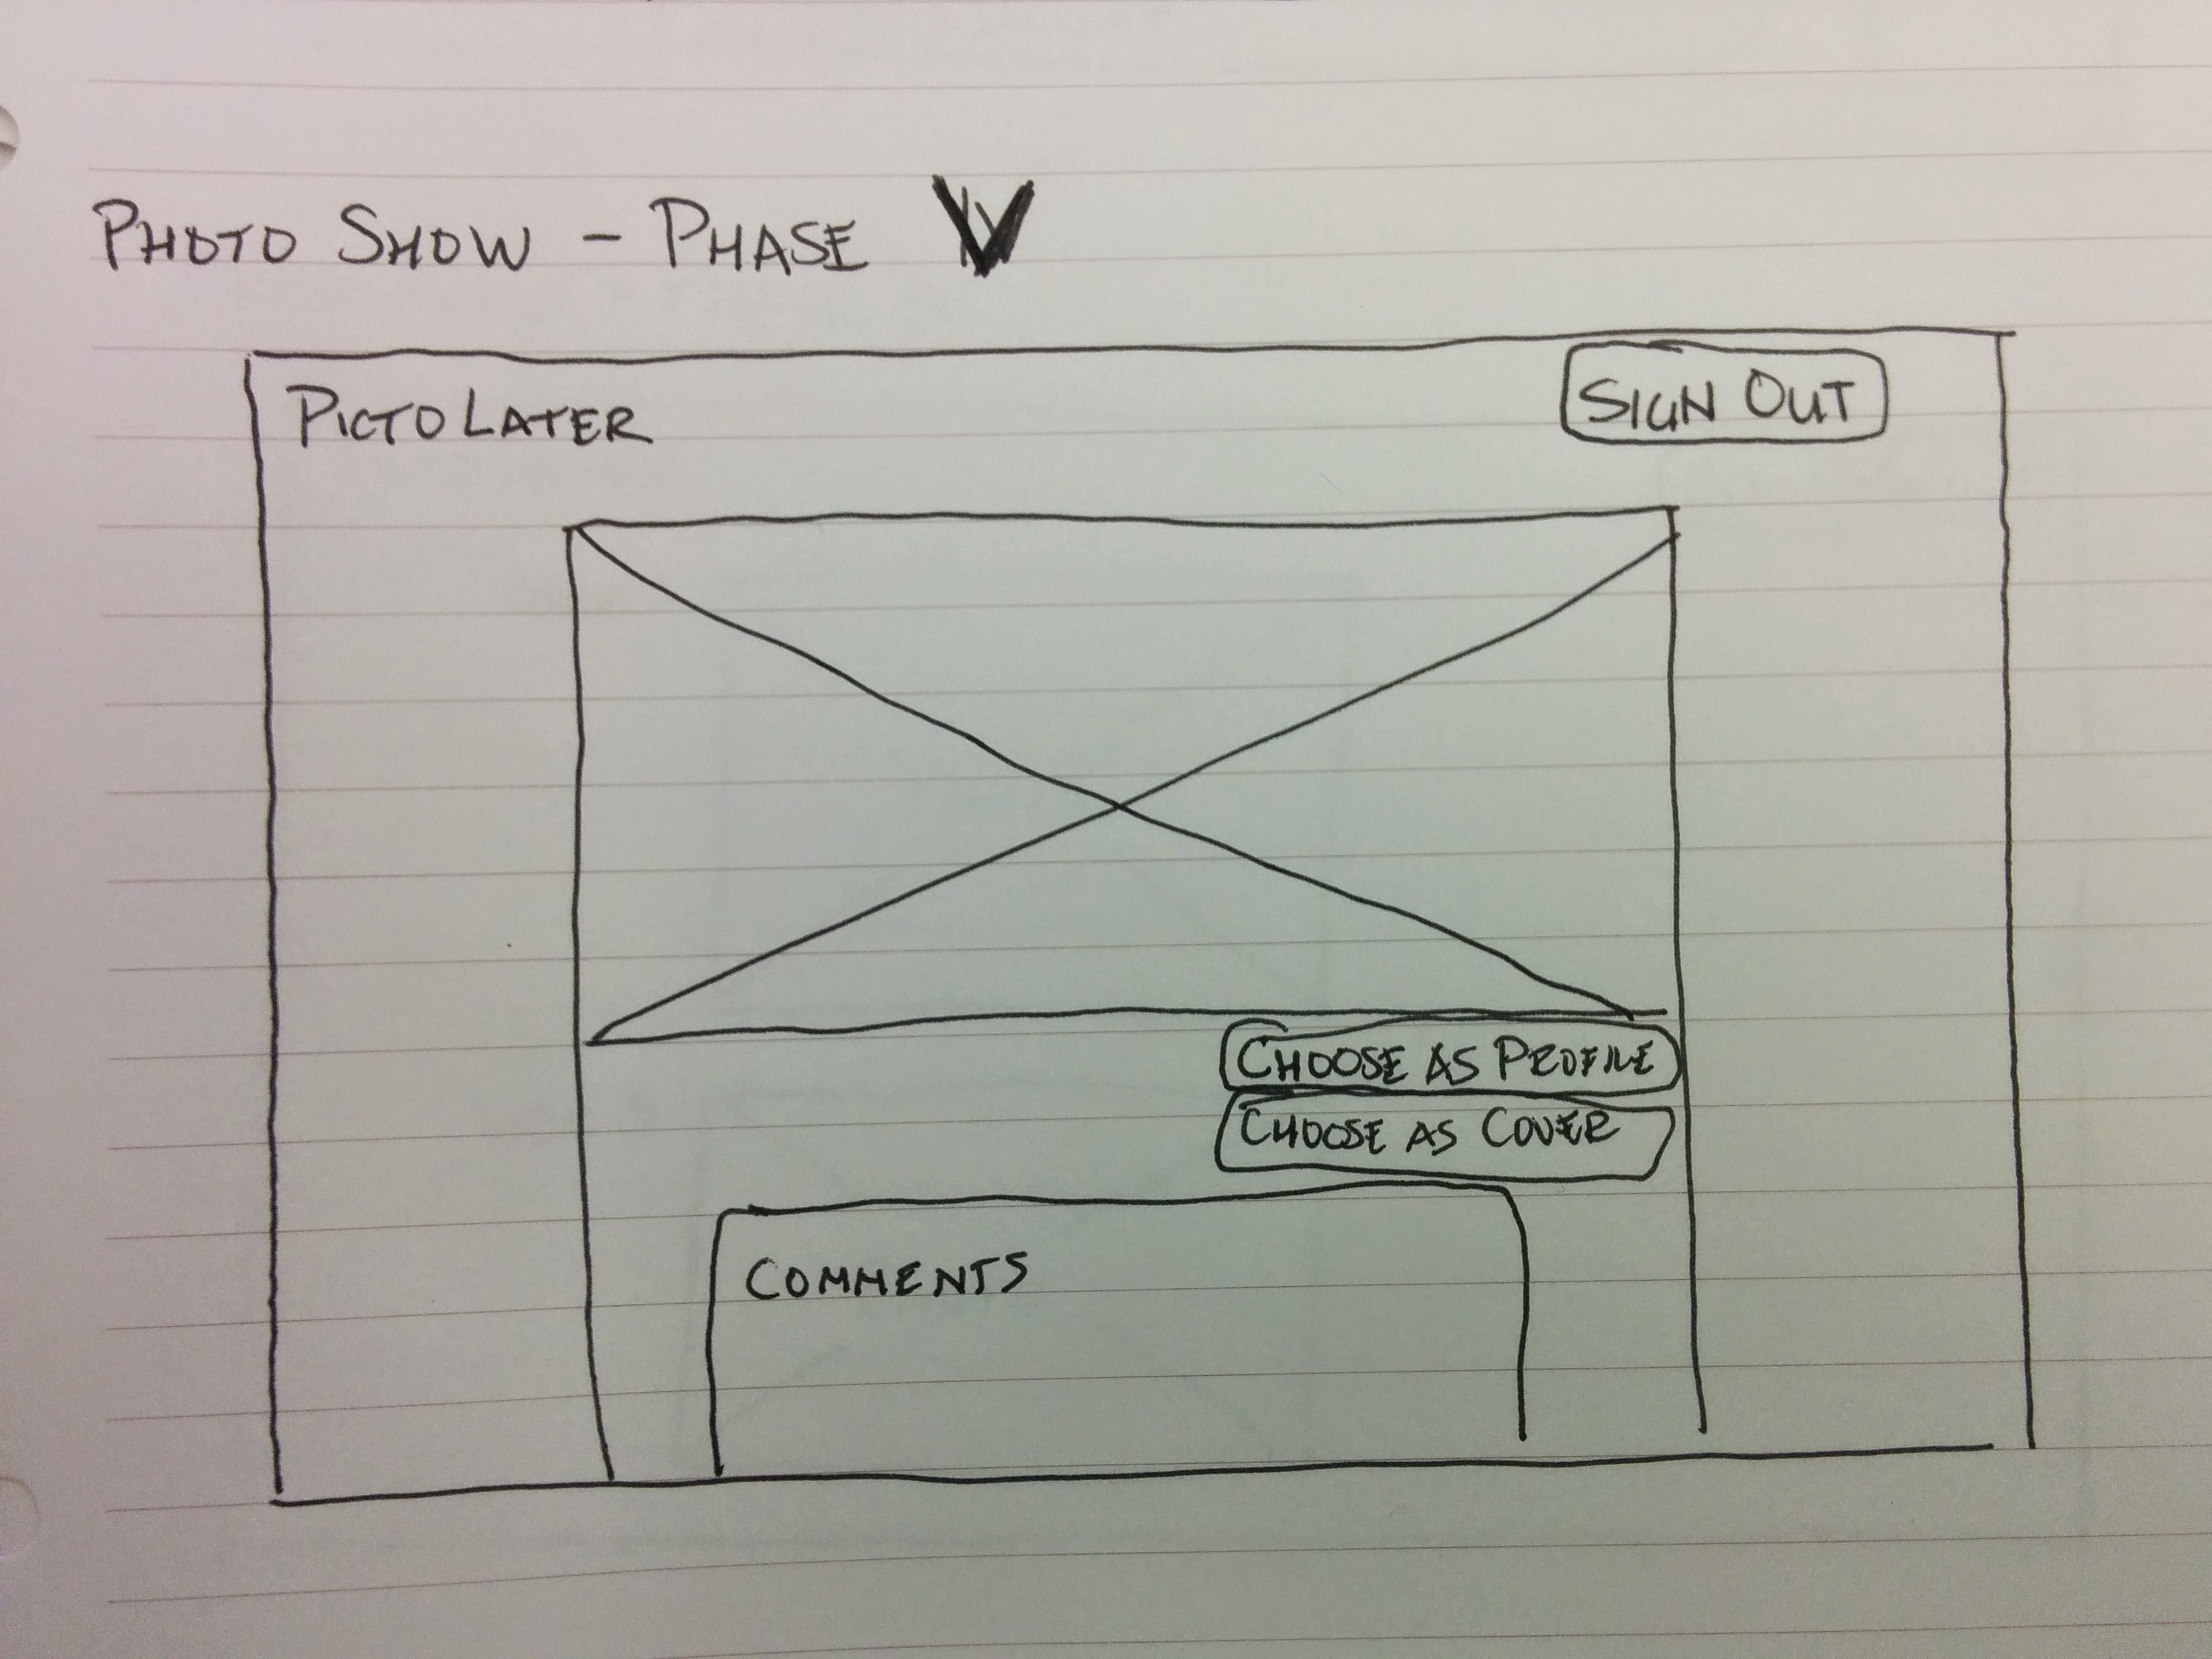 PHOTO SHOW - PHASE V
PICTO LATER
SIGN OUT
CHOOSE AS PROFILE
CHOOSE AS COVER
COMMENTS